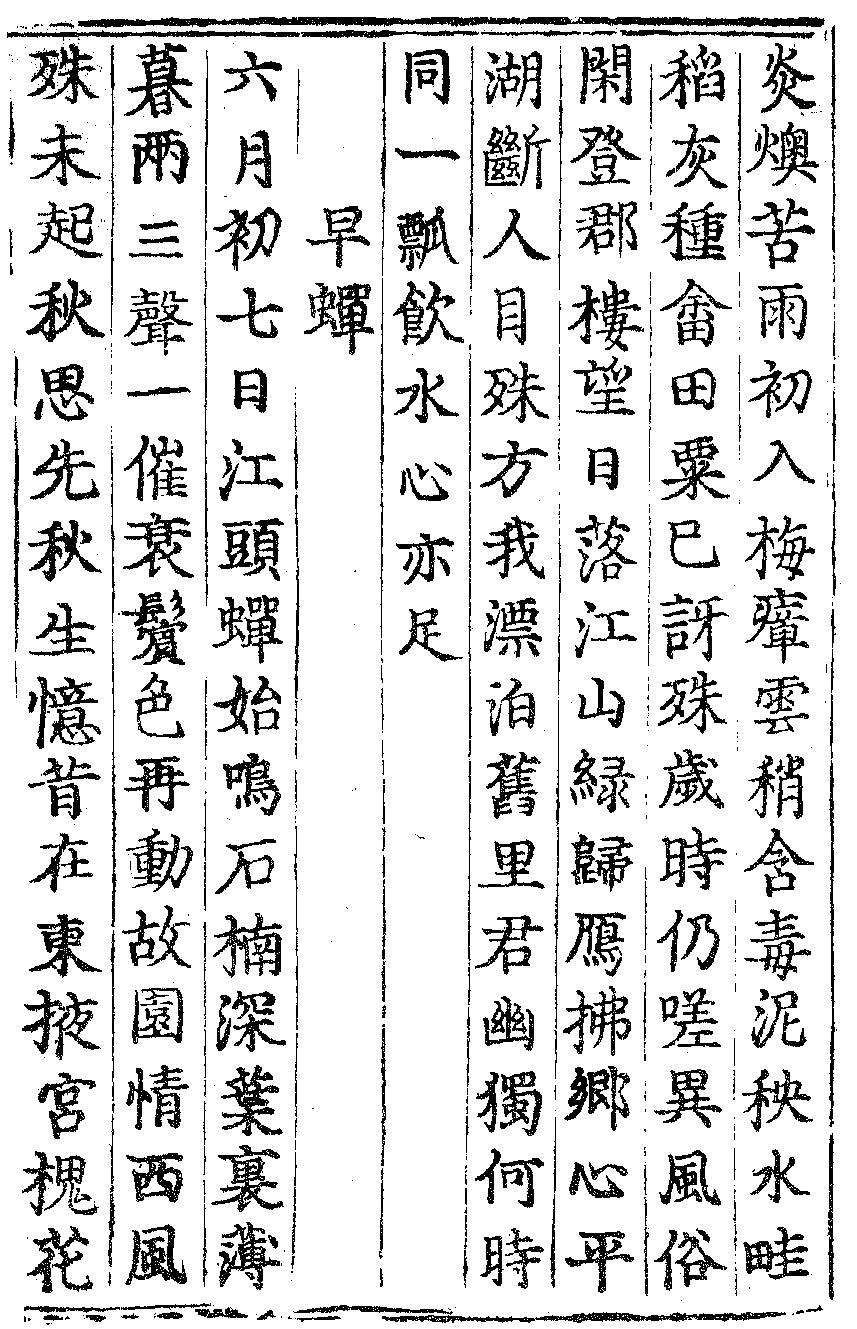 炎燠苦雨初入梅瘴雲稍含毒泥秧水畦
稻灰種畬田粟已訝殊歲時仍嗟異風俗
閑登郡樓望日落江山綠歸鴈拂鄉心平
湖斷人目殊方我漂泊舊里君幽獨何時
同一瓢飲水心亦足
早蟬
六月初七日江頭蟬始鳴石楠深葉裏薄
暮兩三聲一催衰鬢色再動故園情西風
殊未起秋思先秋生憶昔在東掖宮槐花